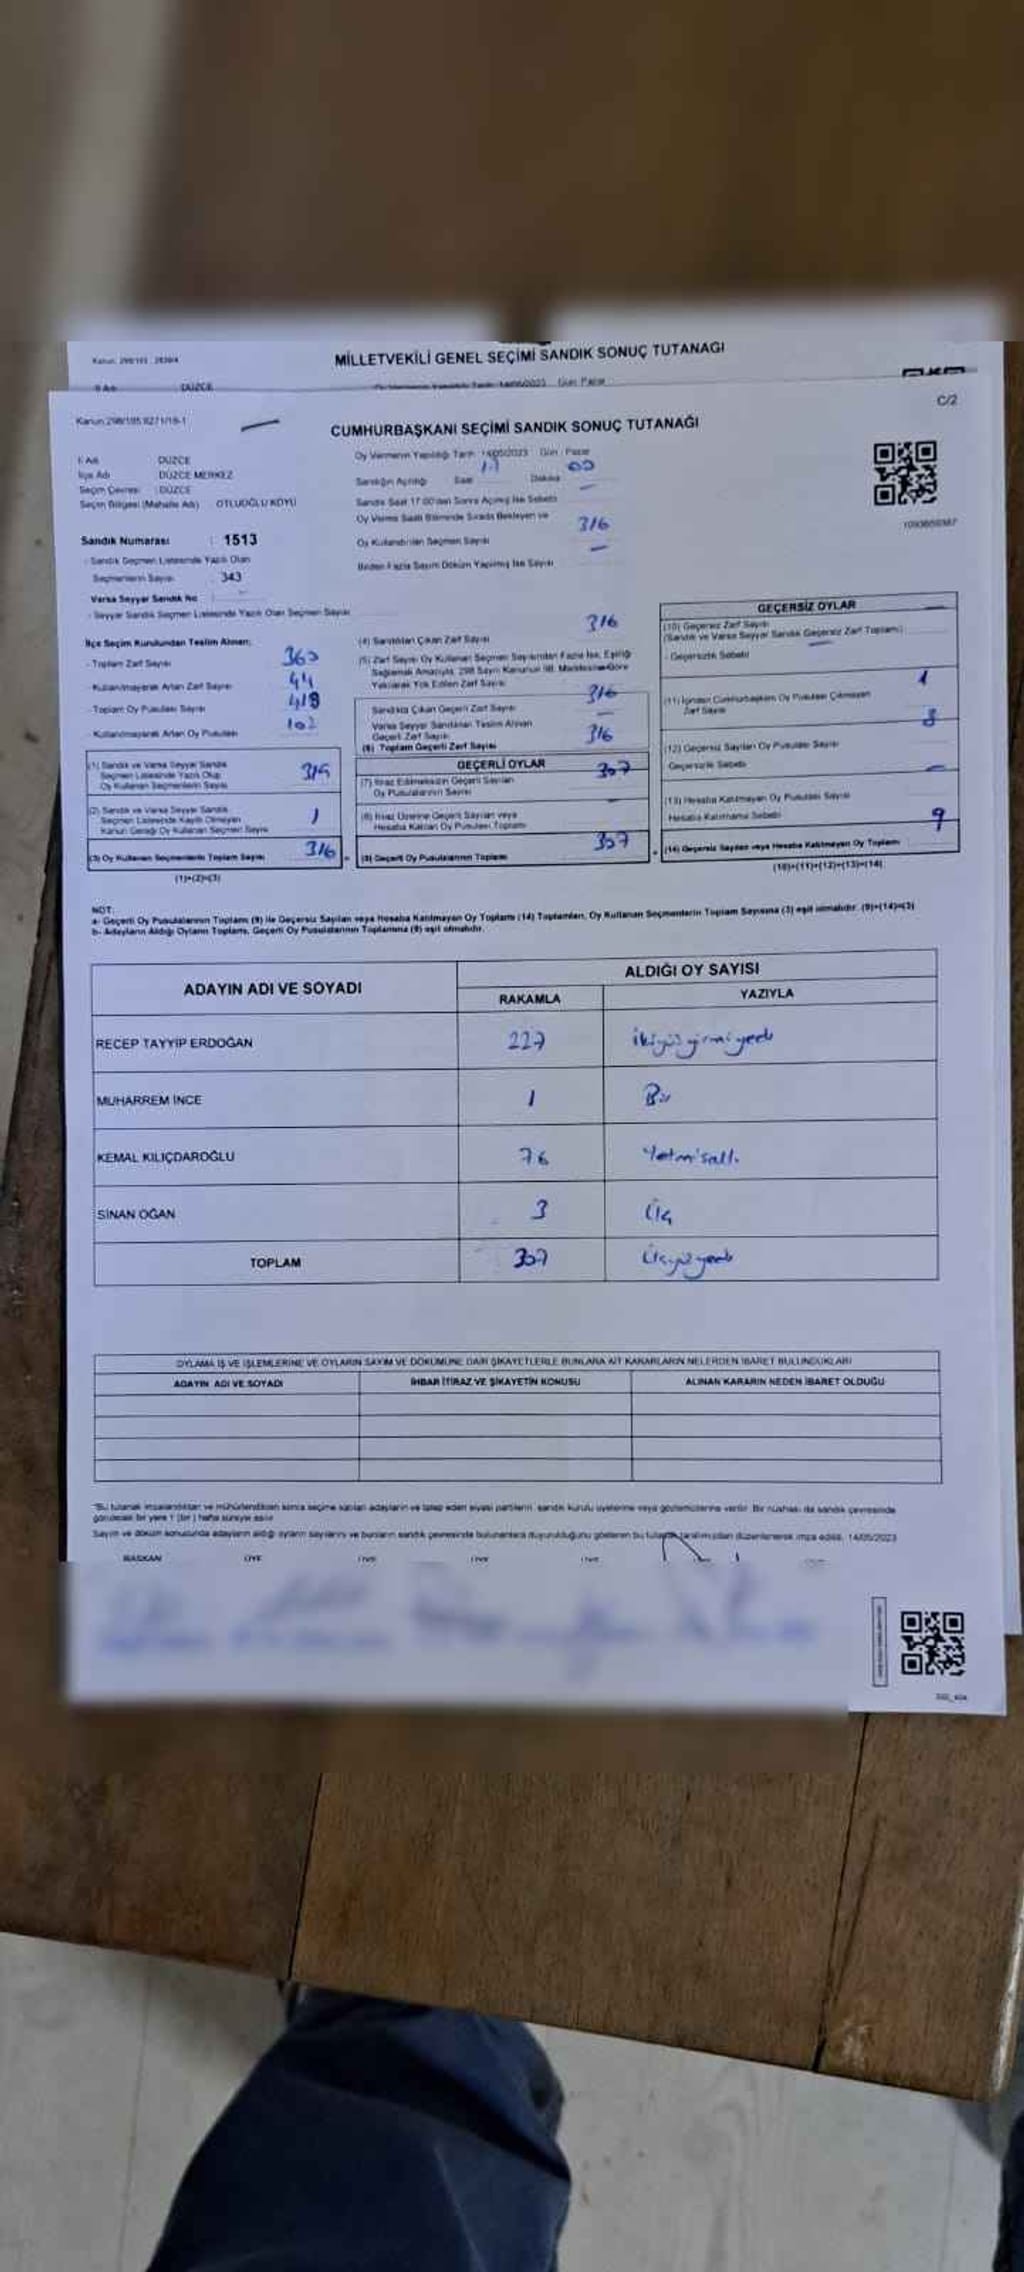 MİLLETVEKİLİ GENEL SEÇİMİ SANDIK SONUÇ TUTANAĞI
DÜZCE
C/2
CUMHURBAŞKANI SEÇİMİ SANDIK SONUÇ TUTANAĞI
İl Adı DÜZCE
İlçe Adı DÜZCE MERKEZ
Seçim Çevresi : DÜZCE
Seçim Bölgesi (Mahalle Adı) OTLUOĞLU KÖYÜ
Oy Vermenin Yapıldığı Tarih 14/05/2023 Gün : Pazar
Sandığın Açıldığı Saat 17 Dakika 00
Sandık Saat 17.00'den Sonra Açılmış İse Sebebi
Oy Verme Saati Bitiminde Sırada Bekleyen ve
Oy Kullandırılan Seçmen Sayısı 316
Birden Fazla Sayım Döküm Yapılmış İse Sayısı
Sandık Numarası : 1513
- Sandık Seçmen Listesinde Yazılı Olan
Seçmenlerin Sayısı 343
Varsa Seyyar Sandık No
- Seyyar Sandık Seçmen Listesinde Yazılı Olan Seçmen Sayısı
İlçe Seçim Kurulundan Teslim Alınan;
- Toplam Zarf Sayısı 360
- Kullanılmayarak Artan Zarf Sayısı 44
- Toplam Oy Pusulası Sayısı 418
- Kullanılmayarak Artan Oy Pusulası 102
(1) Sandık ve Varsa Seyyar Sandık
Seçmen Listesinde Yazılı Olup
Oy Kullanan Seçmenlerin Sayısı 315
(2) Sandık ve Varsa Seyyar Sandık
Seçmen Listesinde Kayıtlı Olmayan
Kanun Gereği Oy Kullanan Seçmen Sayısı 1
(3) Oy Kullanan Seçmenlerin Toplam Sayısı 316
(1)+(2)=(3)
(4) Sandıktan Çıkan Zarf Sayısı 316
(5) Zarf Sayısı Oy Kullanan Seçmen Sayısından Fazla İse, Eşitliği
Sağlamak Amacıyla, 298 Sayılı Kanunun 98. Maddesine Göre
Yakılarak Yok Edilen Zarf Sayısı
Sandıkta Çıkan Geçerli Zarf Sayısı 316
Varsa Seyyar Sandıktan Teslim Alınan
Geçerli Zarf Sayısı
(6) Toplam Geçerli Zarf Sayısı 316
GEÇERLİ OYLAR
(7) İtiraz Edilmeksizin Geçerli Sayılan
Oy Pusulalarının Sayısı 307
(8) İtiraz Üzerine Geçerli Sayılan veya
Hesaba Katılan Oy Pusulası Toplamı
(9) Geçerli Oy Pusulalarının Toplamı 307
GEÇERSİZ OYLAR
(10) Geçersiz Zarf Sayısı
(Sandık ve Varsa Seyyar Sandık Geçersiz Zarf Toplamı)
- Geçersizlik Sebebi
(11) İçinden Cumhurbaşkanı Oy Pusulası Çıkmayan
Zarf Sayısı 1
(12) Geçersiz Sayılan Oy Pusulası Sayısı 8
Geçersizlik Sebebi
(13) Hesaba Katılmayan Oy Pusulası Sayısı
Hesaba Katılmama Sebebi
(14) Geçersiz Sayılan veya Hesaba Katılmayan Oy Toplamı 9
(10)+(11)+(12)+(13)=(14)
NOT:
a- Geçerli Oy Pusulalarının Toplamı (9) ile Geçersiz Sayılan veya Hesaba Katılmayan Oy Toplamı (14) Toplamları, Oy Kullanan Seçmenlerin Toplam Sayısına (3) eşit olmalıdır. (9)+(14)=(3)
b- Adayların Aldığı Oyların Toplamı, Geçerli Oy Pusulalarının Toplamına (9) eşit olmalıdır.
ADAYIN ADI VE SOYADI ALDIĞI OY SAYISI
RAKAMLA YAZIYLA
RECEP TAYYİP ERDOĞAN 227 ikiyüzyirmiyedi
MUHARREM İNCE 1 Bir
KEMAL KILIÇDAROĞLU 76 Yetmişaltı
SİNAN OĞAN 3 Üç
TOPLAM 307 Üçyüzyedi
OYLAMA İŞ VE İŞLEMLERİNE VE OYLARIN SAYIM VE DÖKÜMÜNE DAİR ŞİKAYETLERLE BUNLARA AİT KARARLARIN NELERDEN İBARET BULUNDUKLARI
ADAYIN ADI VE SOYADI İHBAR İTİRAZ VE ŞİKAYETİN KONUSU ALINAN KARARIN NEDEN İBARET OLDUĞU
"Bu tutanak imzalandıktan ve mühürlendikten sonra seçime katılan adayların ve talep eden siyasi partilerin, sandık kurulu üyelerine veya gözlemcilerine verilir. Bir nüshası da sandık çevresinde
görülecek bir yere 1 (bir) hafta süreyle asılır.
Sayım ve döküm sonucunda adayların aldığı oyların sayılarını ve bunların sandık çevresinde bulunanlara duyurulduğunu gösteren bu tutanak tarafımızdan düzenlenerek imza edildi. 14/05/2023
BAŞKAN ÜYE